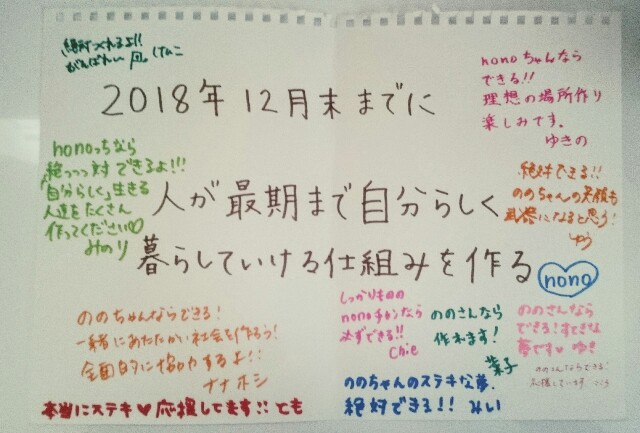 絶対つくれるよ!!
がんばれー
けんこ
nonoちゃんなら
できる!!
理想の場所作り
楽しみです。
ゆきの
2018年12月末までに
nonoっちなら
絶っっっ対できるよ!!!
「自分らしく」生きる
人達をたくさん
作ってください♡
みのり
絶対できる!!
ののちゃんの笑顔も
武器になると思う!
ゆう
人が最期まで自分らしく
暮らしていける仕組みを作る
nono
ののちゃんならできる!
一緒にあたたかい社会を作ろう!
全面的に協力するよ!!
ナナホシ
しっかりものの
nonoチャンなら
必ずできる!!
Chie
ののさんなら
作れます!
葉子
ののさんなら
できる!すてきな
夢です♡ ゆき
ののさんならできる!
応援しています
ののちゃんのステキな夢、
絶対できる!! みい
本当にステキ♥応援してます!! とも